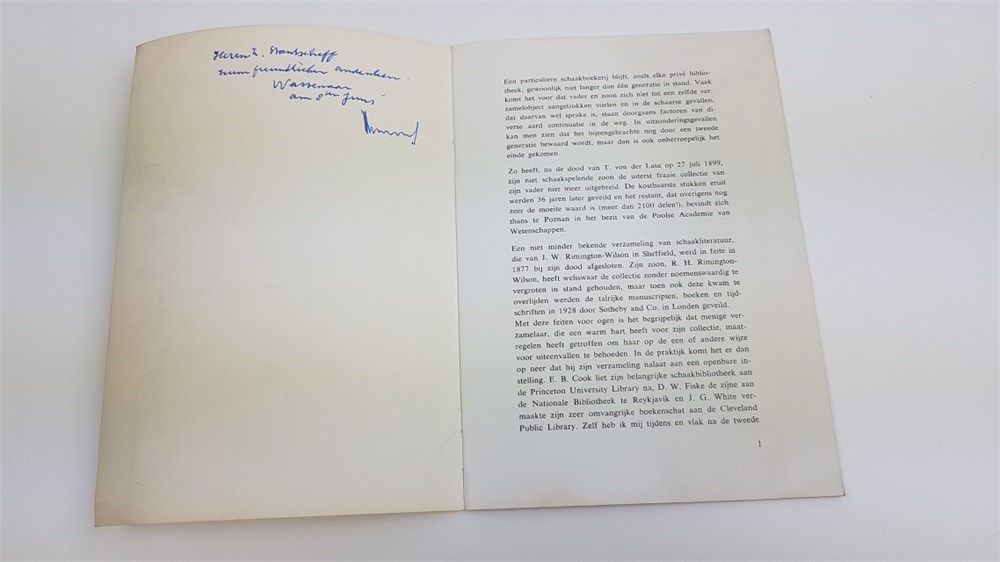 Herrn K. Wantscheff
zum freundlichen andenken.
Wassenaar
am 8ten Juni
Een particuliere schaakboekerij blijft, zoals elke privé biblio-
theek, gewoonlijk niet langer dan één generatie in stand. Vaak
komt het voor dat vader en zoon zich niet tot een zelfde ver-
zamelobject aangetrokken voelen en in de schaarse gevallen,
dat daarvan wel sprake is, staan doorgaans factoren van di-
verse aard continuatie in de weg. In uitzonderingsgevallen
kan men zien dat het bijeengebrachte nog door een tweede
generatie bewaard wordt, maar dan is ook onherroepelijk het
einde gekomen.
Zo heeft, na de dood van T. von der Lasa op 27 juli 1899,
zijn niet schaakspelende zoon de uiterst fraaie collectie van
zijn vader niet meer uitgebreid. De kostbaarste stukken eruit
werden 36 jaren later geveild en het restant, dat overigens nog
zeer de moeite waard is (meer dan 2100 delen!), bevindt zich
thans te Poznan in het bezit van de Poolse Academie van
Wetenschappen.
Een niet minder bekende verzameling van schaakliteratuur,
die van J. W. Rimington-Wilson in Sheffield, werd in feite in
1877 bij zijn dood afgesloten. Zijn zoon, R. H. Rimington-
Wilson, heeft weliswaar de collectie zonder noemenswaardig te
vergroten in stand gehouden, maar toen ook deze kwam te
overlijden werden de talrijke manuscripten, boeken en tijd-
schriften in 1928 door Sotheby and Co. in Londen geveild.
Met deze feiten voor ogen is het begrijpelijk dat menige ver-
zamelaar, die een warm hart heeft voor zijn collectie, maat-
regelen heeft getroffen om haar op de een of andere wijze
voor uiteenvallen te behoeden. In de praktijk komt het er dan
op neer dat hij zijn verzameling nalaat aan een openbare in-
stelling. E. B. Cook liet zijn belangrijke schaakbibliotheek aan
de Princeton University Library na, D. W. Fiske de zijne aan
de Nationale Bibliotheek te Reykjavik en J. G. White ver-
maakte zijn zeer omvangrijke boekenschat aan de Cleveland
Public Library. Zelf heb ik mij tijdens en vlak na de tweede
1